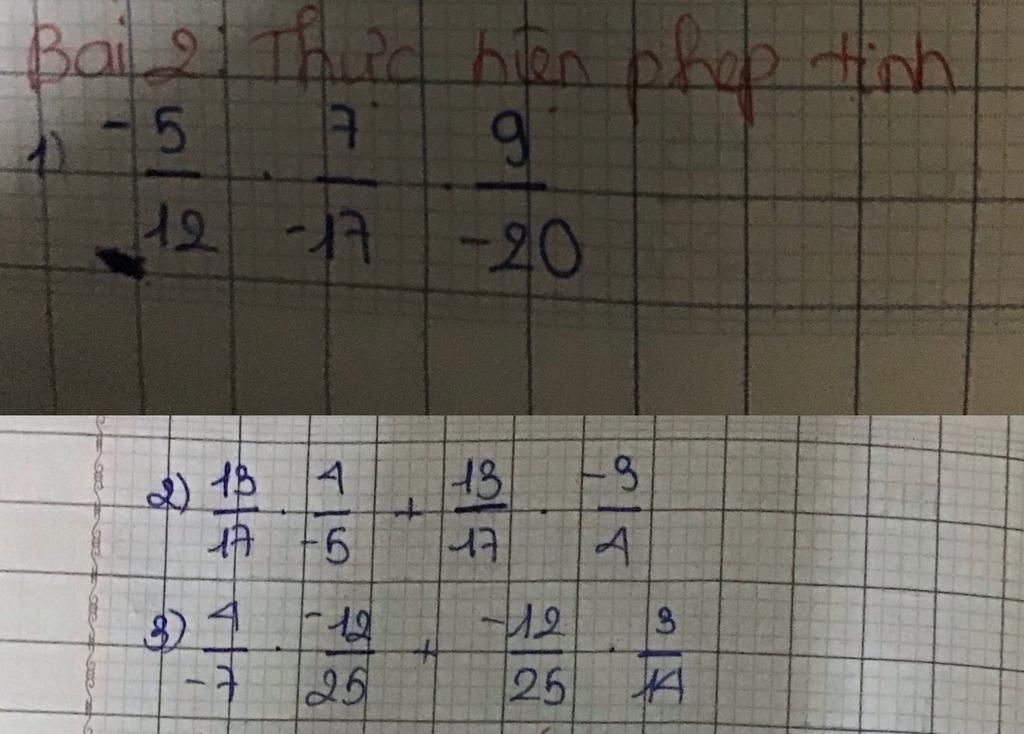 Bài 2: Thực hiện phép tính
1) -5/12 . 7/-17 . 9/-20
2) 13/17 . 4/-5 + 13/17 . -3/4
3) 4/-7 . -12/25 + -12/25 . 3/14